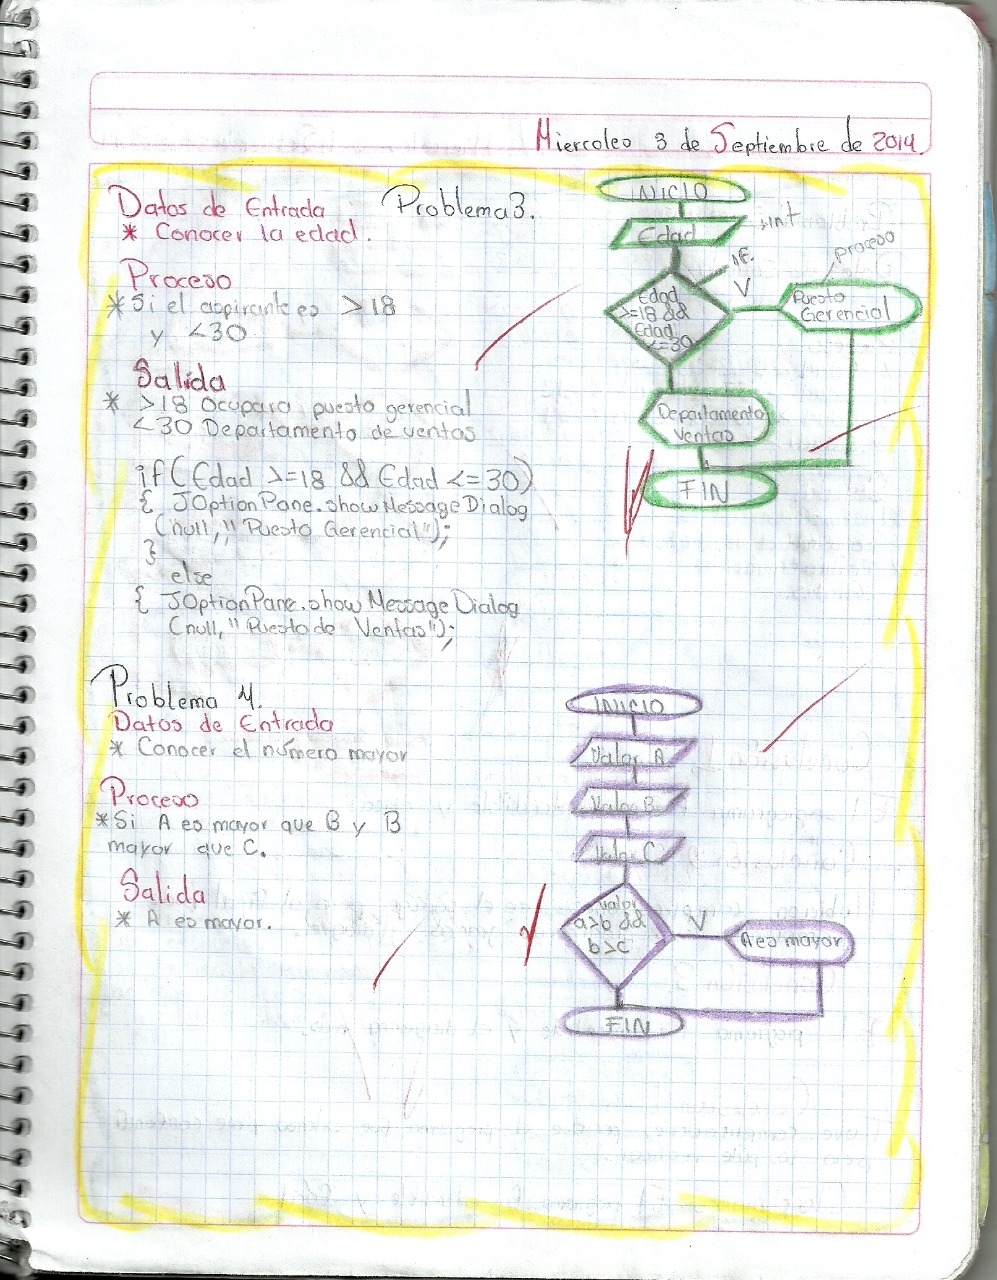 Miercoles 3 de Septiembre de 2014
Problema 3.
Datos de Entrada
* Conocer la edad.
Proceso
* Si el aspirante es >18
y <30
Salida
* >18 Ocupara puesto gerencial
<30 Departamento de ventas
if(Edad >=18 && Edad <=30)
{ JOptionPane.showMessageDialog
(null,"Puesto Gerencial");
}
else
{ JOptionPane.showMessageDialog
(null,"Puesto de Ventas");
INICIO
Edad
int
if
Edad
>=18 &&
Edad
<=30
V
proceso
Puesto
Gerencial
Departamento
Ventas
FIN
Problema 4.
Datos de Entrada
* Conocer el número mayor
Proceso
* Si A es mayor que B y B
mayor que C.
Salida
* A es mayor.
INICIO
Valor A
Valor B
Valor C
valor
a>b &&
b>c
V
A es mayor
FIN